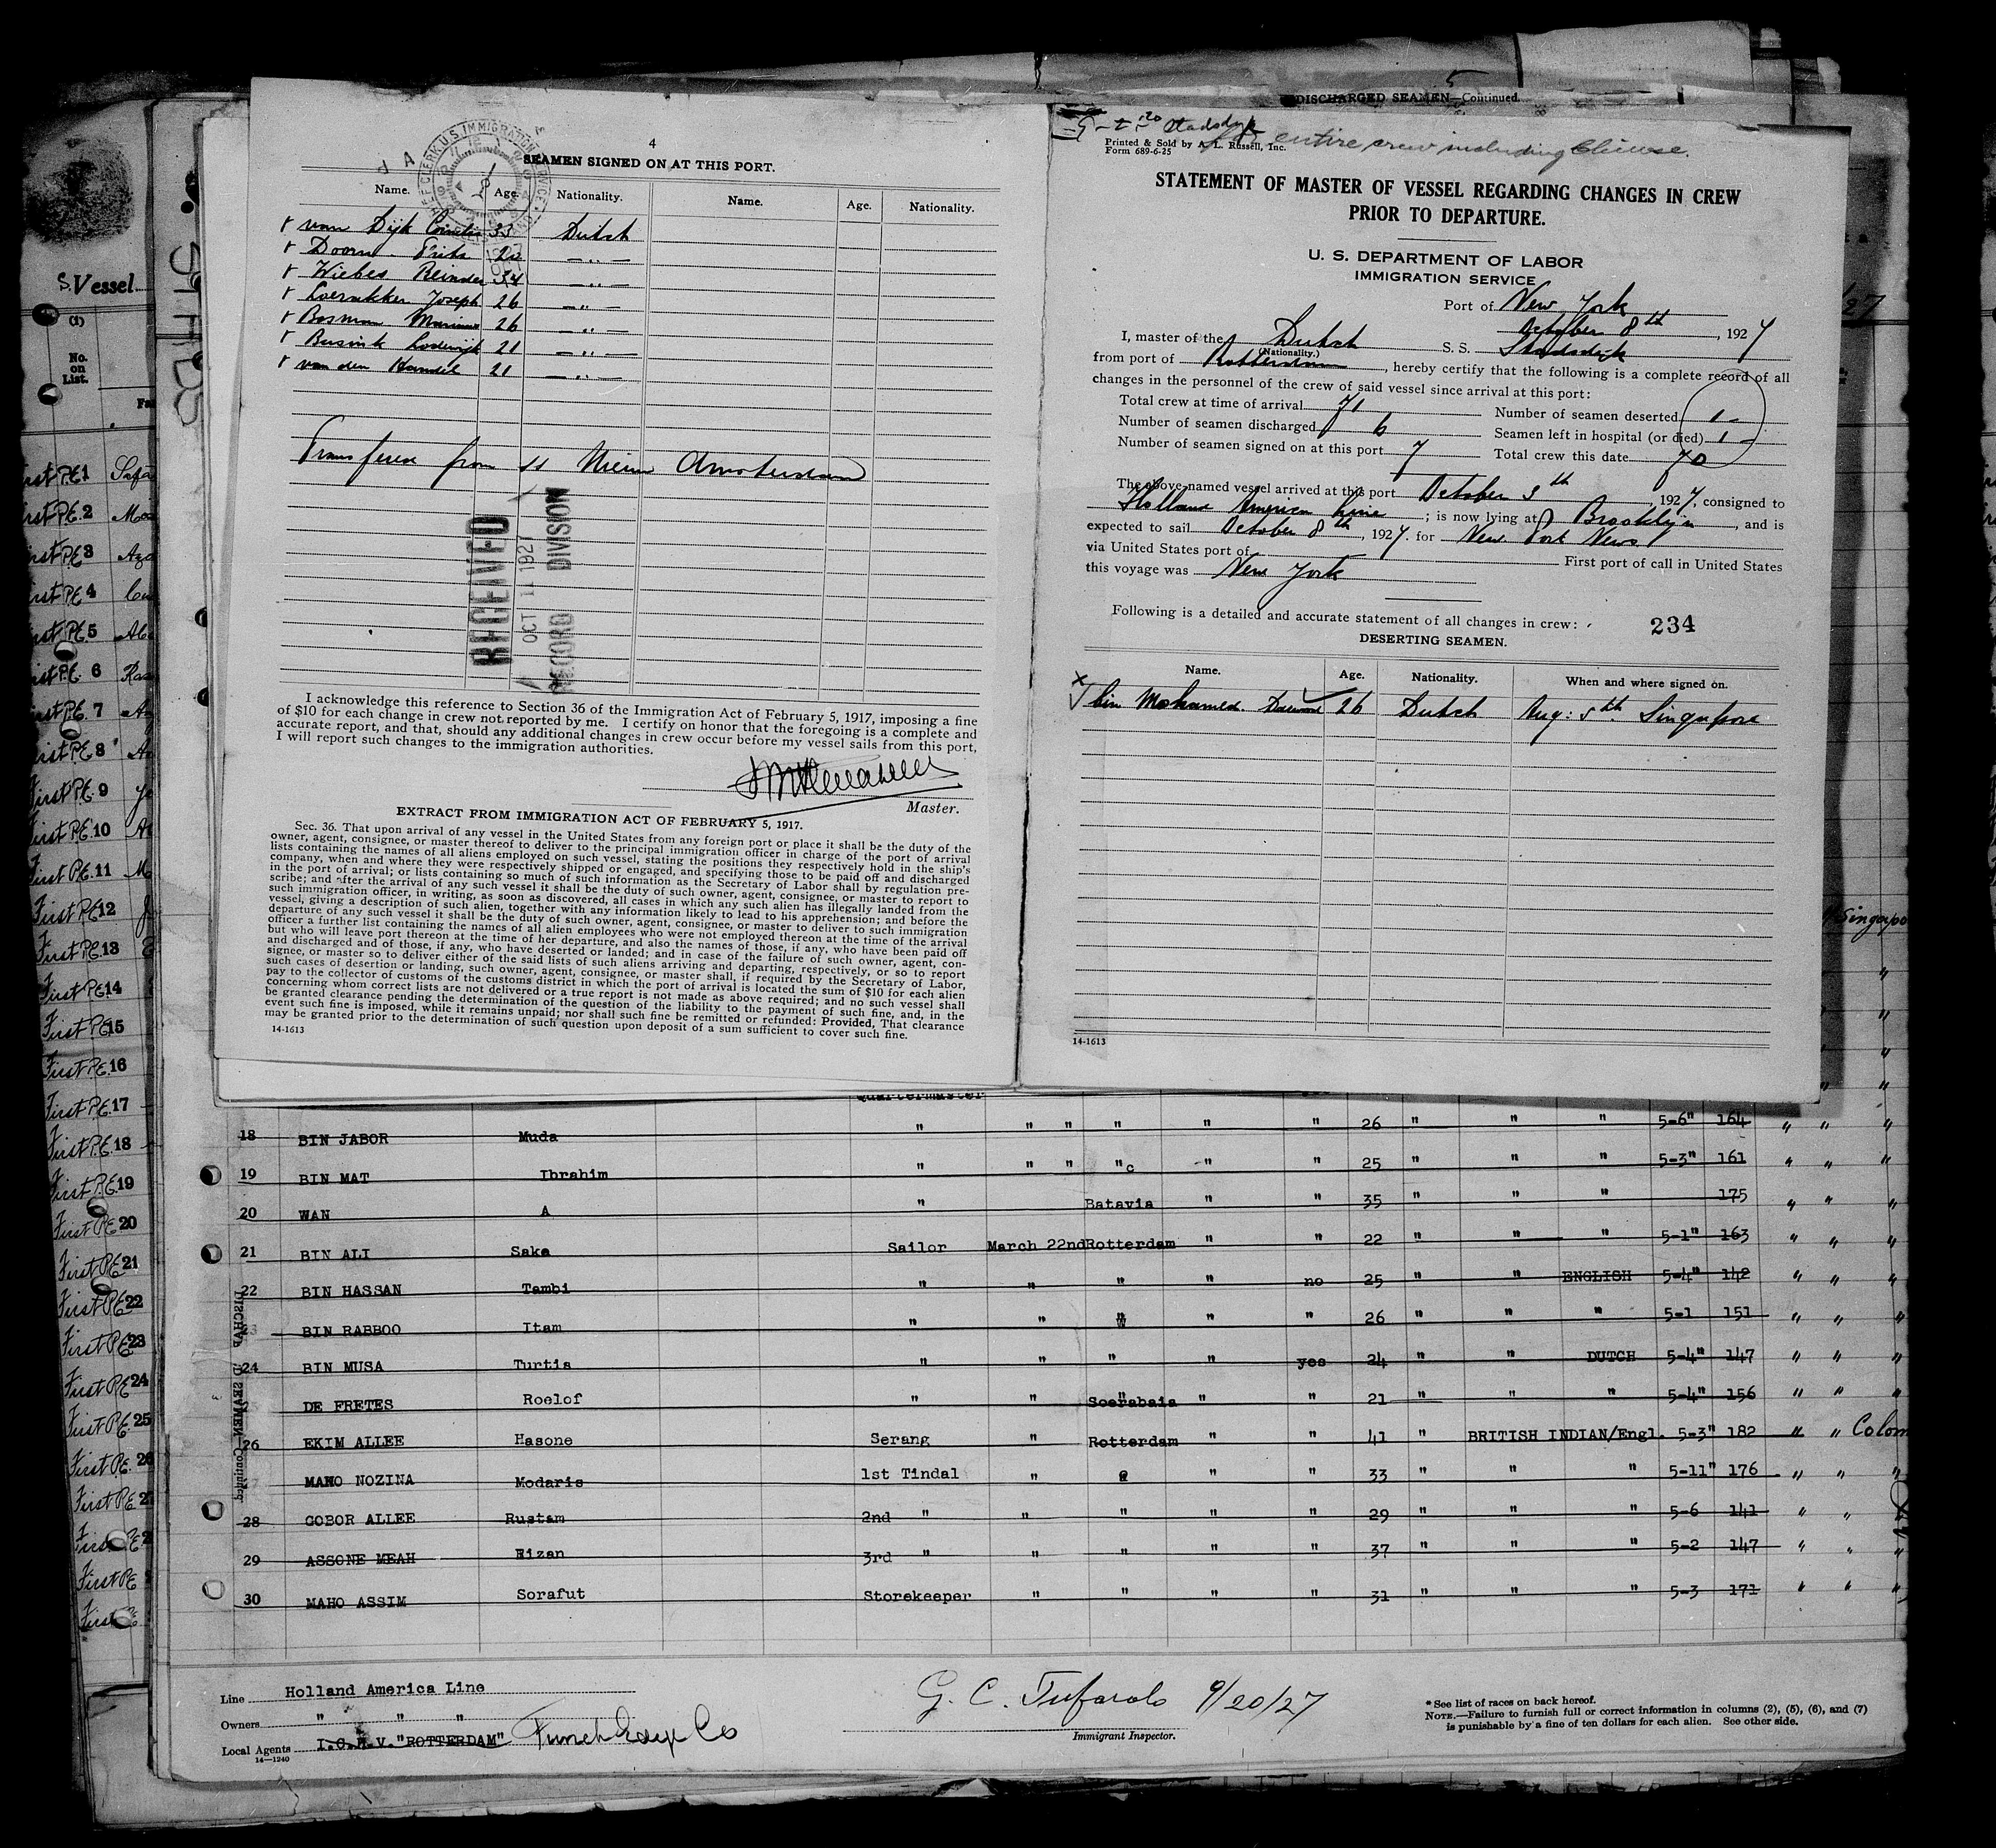 4
SEAMEN SIGNED ON AT THIS PORT.
Name. Age. Nationality. Name. Age. Nationality.
van Dijk Cornelis 33 Dutch
Doorn. Frits 20 —„—
Wiebes Reinder 34 —„—
Joseph 26 —„—
Bosman Marinus 26 —„—
Busink Lodewijk 21 —„—
van den 21 —„—
from ss Nieuw Amsterdam
RECEIVED
OCT 11 1927
RECORD DIVISION
I acknowledge this reference to Section 36 of the Immigration Act of February 5, 1917, imposing a fine
of $10 for each change in crew not reported by me. I certify on honor that the foregoing is a complete and
accurate report, and that, should any additional changes in crew occur before my vessel sails from this port,
I will report such changes to the immigration authorities.
Master.
EXTRACT FROM IMMIGRATION ACT OF FEBRUARY 5, 1917.
Sec. 36. That upon arrival of any vessel in the United States from any foreign port or place it shall be the duty of the
owner, agent, consignee, or master thereof to deliver to the principal immigration officer in charge of the port of arrival
lists containing the names of all aliens employed on such vessel, stating the positions they respectively hold in the ship's
company, when and where they were respectively shipped or engaged, and specifying those to be paid off and discharged
in the port of arrival; or lists containing so much of such information as the Secretary of Labor shall by regulation pre-
scribe; and after the arrival of any such vessel it shall be the duty of such owner, agent, consignee, or master to report to
such immigration officer, in writing, as soon as discovered, all cases in which any such alien has illegally landed from the
vessel, giving a description of such alien, together with any information likely to lead to his apprehension; and before the
departure of any such vessel it shall be the duty of such owner, agent, consignee, or master to deliver to such immigration
officer a further list containing the names of all alien employees who were not employed thereon at the time of the arrival
but who will leave port thereon at the time of her departure, and also the names of those, if any, who have been paid off
and discharged and of those, if any, who have deserted or landed; and in case of the failure of such owner, agent, con-
signee, or master so to deliver either of the said lists of such aliens arriving and departing, respectively, or so to report
such cases of desertion or landing, such owner, agent, consignee, or master shall, if required by the Secretary of Labor,
pay to the collector of customs of the customs district in which the port of arrival is located the sum of $10 for each alien
concerning whom correct lists are not delivered or a true report is not made as above required; and no such vessel shall
be granted clearance pending the determination of the question of the liability to the payment of such fine, and, in the
event such fine is imposed, while it remains unpaid; nor shall such fine be remitted or refunded: Provided, That clearance
may be granted prior to the determination of such question upon deposit of a sum sufficient to cover such fine.
14-1613
DISCHARGED SEAMEN—Continued.
entire crew including Chinese.
Printed & Sold by A. L. Russell, Inc.
Form 689-6-25
STATEMENT OF MASTER OF VESSEL REGARDING CHANGES IN CREW
PRIOR TO DEPARTURE.
U. S. DEPARTMENT OF LABOR
IMMIGRATION SERVICE
Port of New York
October 8th, 1927
I, master of the Dutch S. S. Stadsdijk
(Nationality.)
from port of Rotterdam, hereby certify that the following is a complete record of all
changes in the personnel of the crew of said vessel since arrival at this port:
Total crew at time of arrival 71 Number of seamen deserted 1-
Number of seamen discharged 6 Seamen left in hospital (or died) 1-
Number of seamen signed on at this port 7 Total crew this date 70
The above-named vessel arrived at this port October 3th, 1927, consigned to
Holland American Line; is now lying at Brooklyn, and is
expected to sail October 8th, 1927. for New Port News
via United States port of First port of call in United States
this voyage was New York
Following is a detailed and accurate statement of all changes in crew:
234
DESERTING SEAMEN.
Name. Age. Nationality. When and where signed on.
bin Mohamed 26 Dutch Aug: 5th Singapore
14-1613
S. Vessel
(1)
No.
on
List.
First P.E. 1
First P.E. 2
First P.E. 3
First P.E. 4
First P.E. 5
First P.E. 6
First P.E. 7
First P.E. 8
First P.E. 9
First P.E. 10
First P.E. 11
First P.E. 12
First P.E. 13
First P.E. 14
First P.E. 15
First P.E. 16
First P.E. 17
First P.E. 18
First P.E. 19
First P.E. 20
First P.E. 21
First P.E. 22
First P.E. 23
First P.E. 24
First P.E. 25
First P.E. 26
Quartermaster
18 BIN JABOR Muda " " " " " " 26 " " " 5-6" 164 " " "
19 BIN MAT Ibrahim " " " " " " 25 " " " 5-3" 161 " " "
20 WAN A " Batavia " " 35 " " " 175 " " "
21 BIN ALI Sake Sailor March 22nd Rotterdam " " 22 " " " 5-1" 163 " " "
22 BIN HASSAN Tambi " " " " no 25 " " ENGLISH 5-4" 142 " " "
23 BIN RABBOO Itam " " " " " 26 " " " 5-1 151 " " "
24 BIN MUSA Turtis " " " " yes 24 " " DUTCH 5-4" 147 " " "
25 DE FRETES Roelof " " Soerabaia " " 21 " " " 5-4" 156 " " "
26 EKIM ALLEE Hasone Serang " Rotterdam " " 41 " BRITISH INDIAN/Engl. 5-3" 182 " " Colom
27 MAHO NOZINA Modaris 1st Tindal " " " " 33 " " " 5-11" 176 " " "
28 GOBOR ALLEE Rustam 2nd " " " " " 29 " " " 5-6 141 " " "
29 ASSONE MEAH Rizan 3rd " " " " " 37 " " " 5-2 147 " " "
30 MAHO ASSIM Sorafut Storekeeper " " " " 31 " " " 5-3 171 " " "
DISCHARGED SEAMEN—Continued.
Line Holland America Line
Owners " " "
Local Agents "ROTTERDAM" Funch Edye Co
14—1240
G. C. Tufarolo 9/20/27
Immigrant Inspector.
* See list of races on back hereof.
NOTE.—Failure to furnish full or correct information in columns (2), (5), (6), and (7)
is punishable by a fine of ten dollars for each alien. See other side.